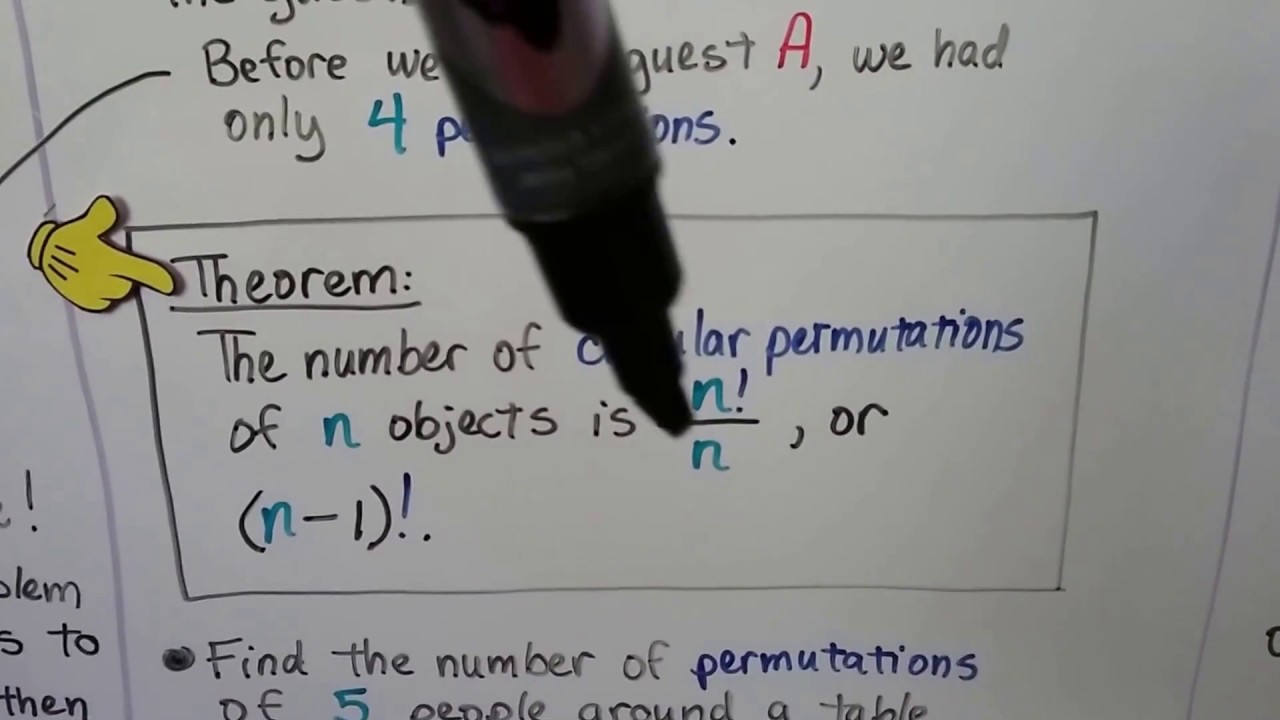 Before we guest A, we had
only 4
Theorem:
The number of permutations
of n objects is n!/n, or
(n-1)!.
!
s to
then
• Find the number of permutations
of 5 people around a table